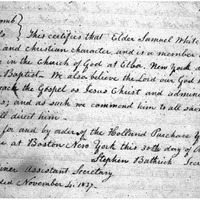 This certifies that Elder Samuel White
and christian character, and is a member
in the Church of God at Elba. New York
Baptist. We also believe the Lord our God
the Gospel as Jesus Christ and
and as such we commend him to all
direct him.
for and by order of the Holland Purchase
at Boston New York this 30th day of
Stephen Bathrick
Assistant Secretary
November 4, 1837.